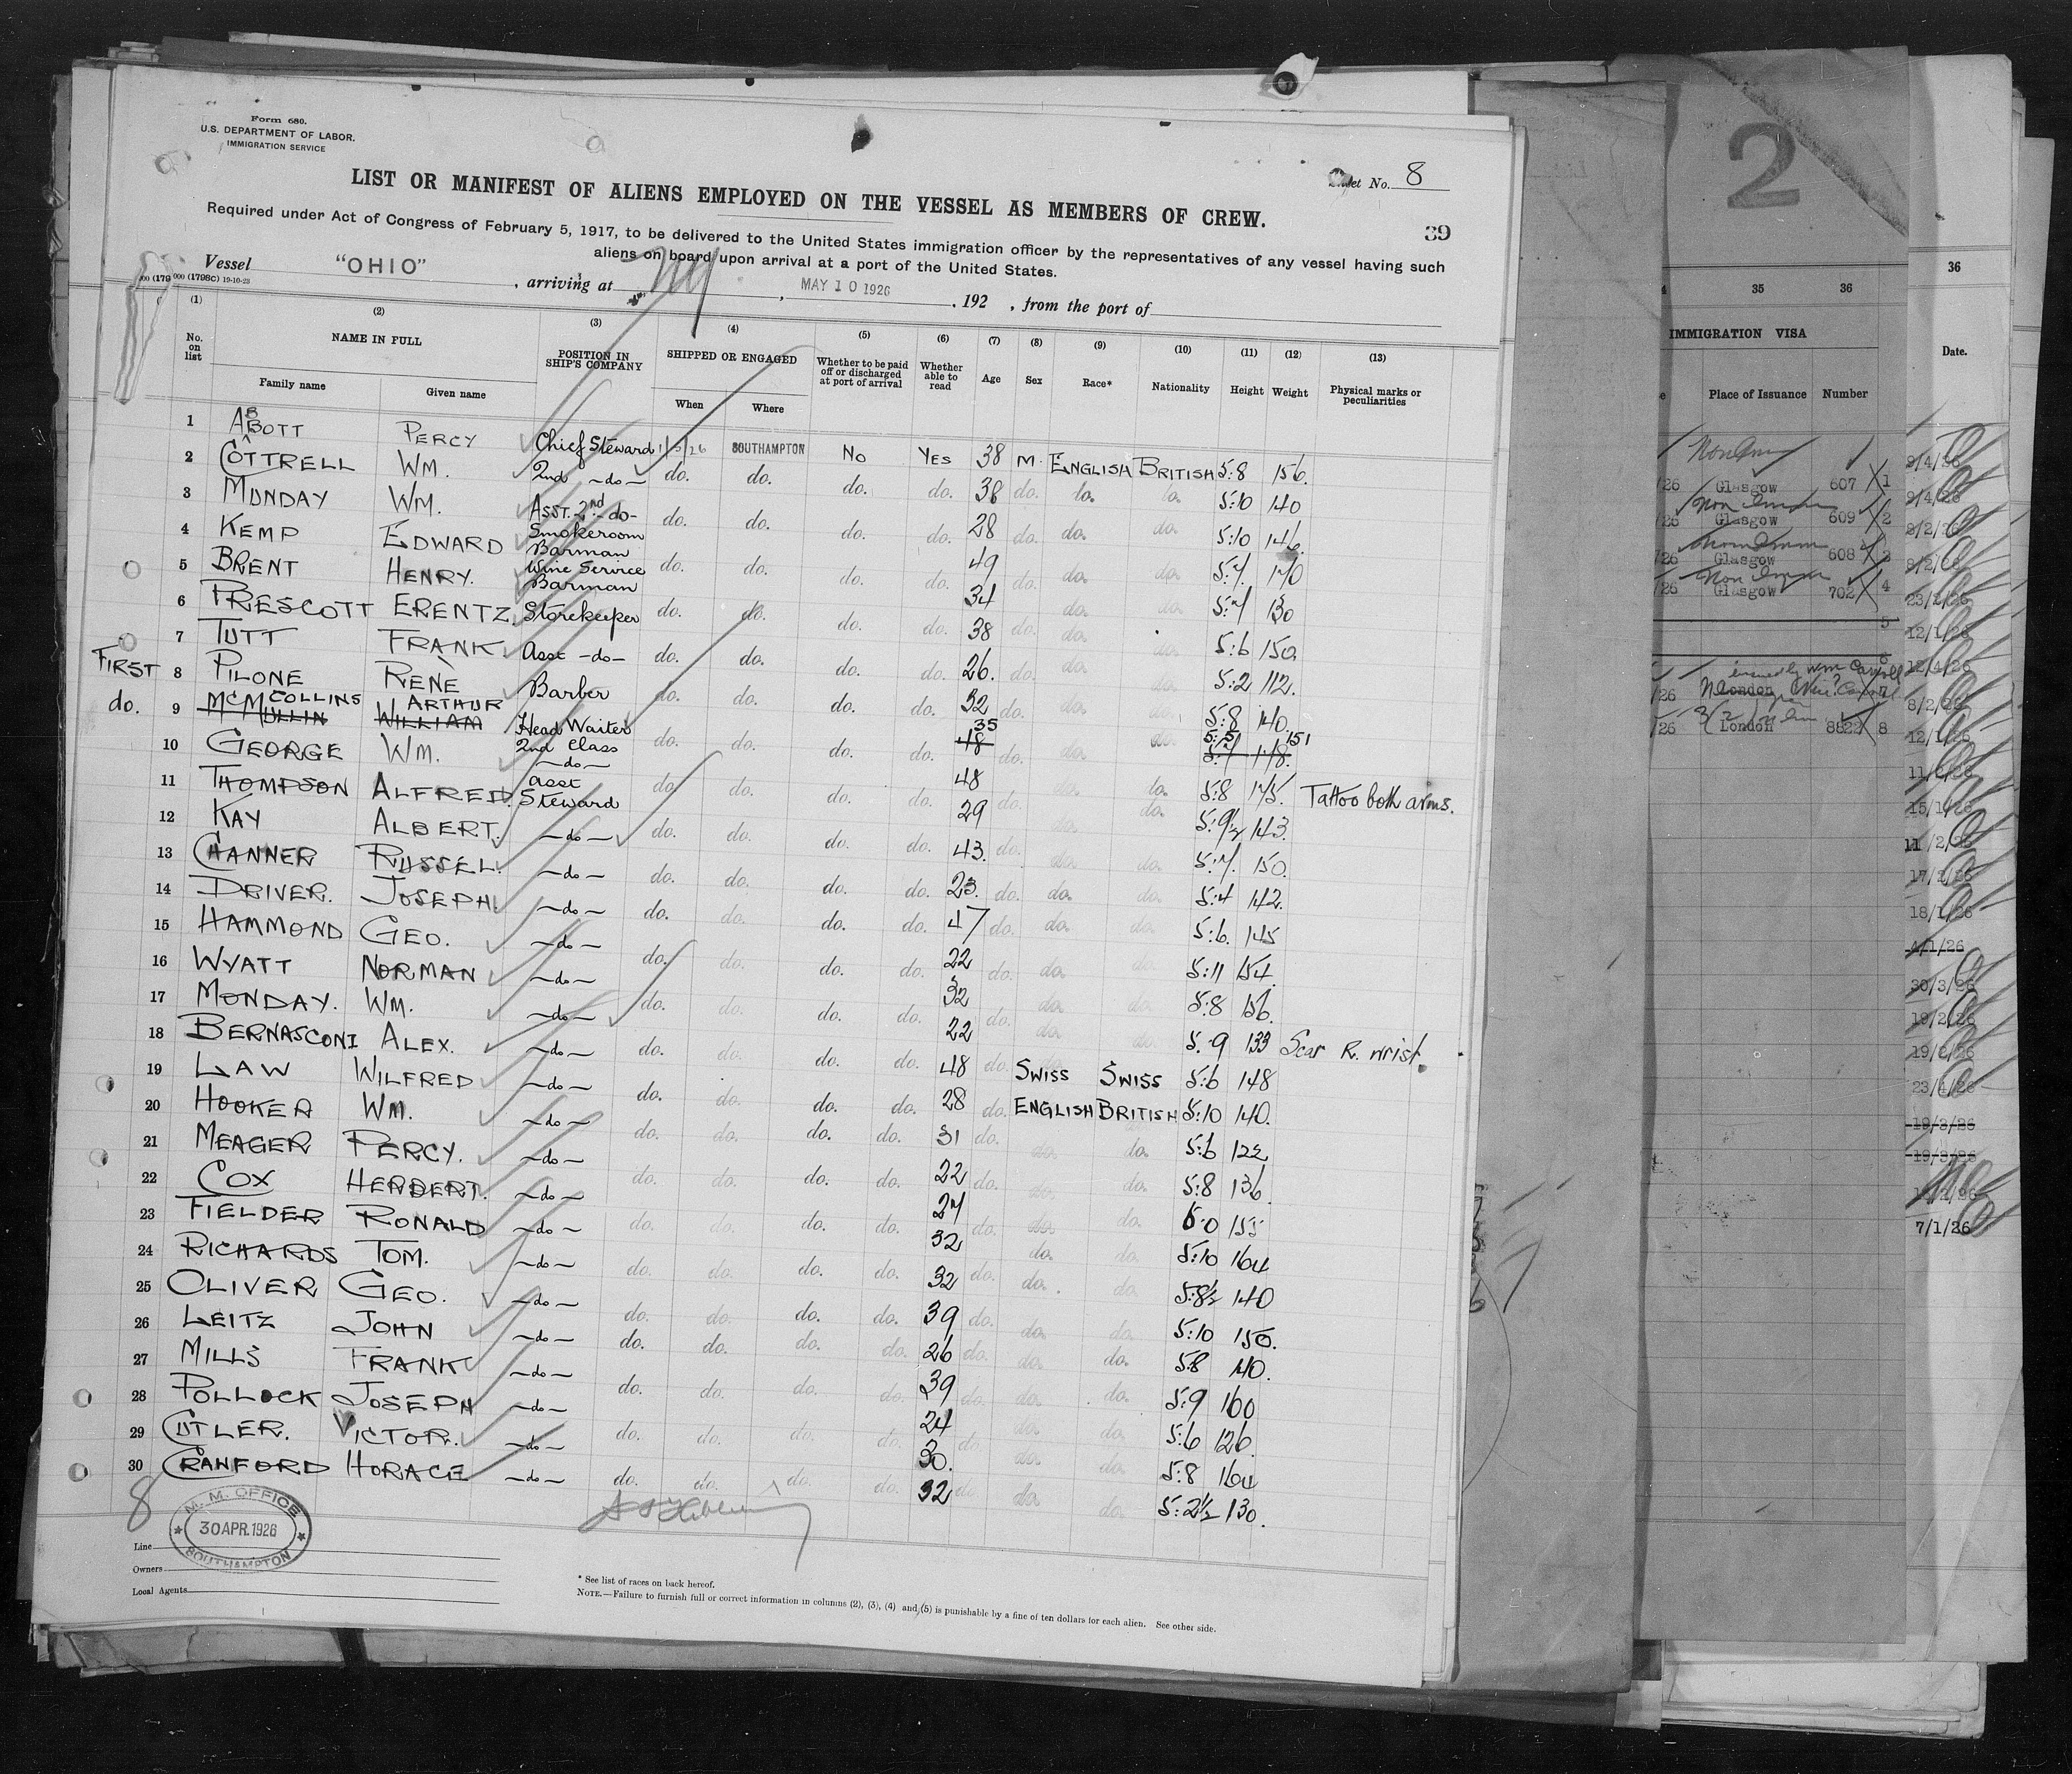 Form 680.
U.S. DEPARTMENT OF LABOR.
IMMIGRATION SERVICE
Sheet No. 8
LIST OR MANIFEST OF ALIENS EMPLOYED ON THE VESSEL AS MEMBERS OF CREW.
39
Required under Act of Congress of February 5, 1917, to be delivered to the United States immigration officer by the representatives of any vessel having such
aliens on board upon arrival at a port of the United States.
Vessel "OHIO" , arriving at NY , MAY 10 1926 , 192 , from the port of
000 (1798C) 19-10-23
(1) (2) (3) (4) (5) (6) (7) (8) (9) (10) (11) (12) (13)
No. on list NAME IN FULL POSITION IN SHIP'S COMPANY SHIPPED OR ENGAGED Whether to be paid off or discharged at port of arrival Whether able to read Age Sex Race* Nationality Height Weight Physical marks or peculiarities
Family name Given name When Where
1 ABBOTT PERCY Chief Steward 1/5/26 SOUTHAMPTON NO YES 38 M. ENGLISH BRITISH 5:8 156.
2 COTTRELL WM. 2nd -do- do. do. do. do. 38 do. do. do. 5:10 140
3 MUNDAY WM. ASST. 2nd -do- do. do. do. do. 28 do. do. do. 5:10 146.
4 KEMP EDWARD Smokeroom Barman do. do. do. do. 49 do. do. do. 5:7. 170
5 BRENT HENRY. Wine Service Barman do. do. do. do. 34 do. do. 5:7 130
6 PRESCOTT ERENTZ. Storekeeper do. do. do. do. 38 do. do. do. 5:6 150.
7 TUTT FRANK Asst -do- do. do. do. do. 26. do. do. do. 5:2 112.
FIRST 8 PILONE RENÈ Barber do. do. do. do. 32 do. 5:8 140.
do. 9 McMULLIN McCOLLINS WILLIAM ARTHUR Head Waiter 2nd Class do. do. do. do. 48 35 do. do. do. 5:7 178. 5:5 151
10 GEORGE WM. -do- do. do. do. do. 48 do. do. 5:8 175. Tattoo both arms.
11 THOMPSON ALFRED. Asst Steward do. do. do. do. 29 do. do. do. 5:9½ 143.
12 KAY ALBERT. -do- do. do. do. do. 43. do. do. do. 5:7. 150.
13 CHANNER RUSSEL. -do- do. do. do. do. 23. do. do. do. 5:4 142.
14 DRIVER. JOSEPH -do- do. do. do. do. 47 do. do. do. 5:6. 145
15 HAMMOND GEO. -do- do. do. do. do. 22 do. do. do. 5:11 154.
16 WYATT NORMAN -do- do. do. do. do. 32 do. do. do. 5:8 156.
17 MONDAY. WM. -do- do. do. do. do. 22 do. do. do. 5.9 133 Scar R. wrist.
18 BERNASCONI ALEX. -do- do. do. do. do. 48 do. SWISS SWISS 5:6 148
19 LAW WILFRED -do- do. do. do. do. 28 do. ENGLISH BRITISH 5:10 140.
20 HOOKER WM. -do- do. do. do. do. 31 do. do. do. 5:6 122
21 MEAGER PERCY. -do- do. do. do. do. 22 do. do. do. 5:8 136.
22 COX HERBERT. -do- do. do. do. do. 27 do. do. do. 155
23 FIELDER RONALD -do- do. do. do. do. 32 do. do. do. 5:10 164
24 RICHARDS TOM. -do- do. do. do. do. 32 do. do. do. 5:8½ 140
25 OLIVER GEO. -do- do. do. do. do. 39 do. do. do. 5:10 150.
26 LEITZ JOHN -do- do. do. do. do. 26 do. do. do. 5:8 140.
27 MILLS FRANK -do- do. do. do. do. 39 do. do. do. 5:9 160
28 POLLOCK JOSEPH -do- do. do. do. do. 24 do. do. do. 5:6 126.
29 CUTLER. VICTOR. -do- do. do. do. do. 30. do. do. 5:8 164
30 CRANFORD HORACE -do- do. do. do. do. 32 do. do. do. 5:2½ 130.
8
M. M. OFFICE
30 APR. 1926
SOUTHAMPTON
Line
Owners
Local Agents
* See list of races on back hereof.
NOTE.—Failure to furnish full or correct information in columns (2), (3), (4) and (5) is punishable by a fine of ten dollars for each alien. See other side.
2
35 36
IMMIGRATION VISA
Place of Issuance Number
Glasgow 607 1
Glasgow 609 2
Glasgow 608 3
Glasgow 702 4
5
6
London 7
London 8822 8
36
Date.
9/4/26
9/4/26
8/2/26
8/2/26
23/2/26
12/1/26
12/4/26
8/2/26
12/1/26
15/1/26
11/2/26
17/2/26
18/1/26
4/1/26
30/3/26
19/2/26
19/2/26
23/4/26
19/3/26
19/3/26
7/1/26